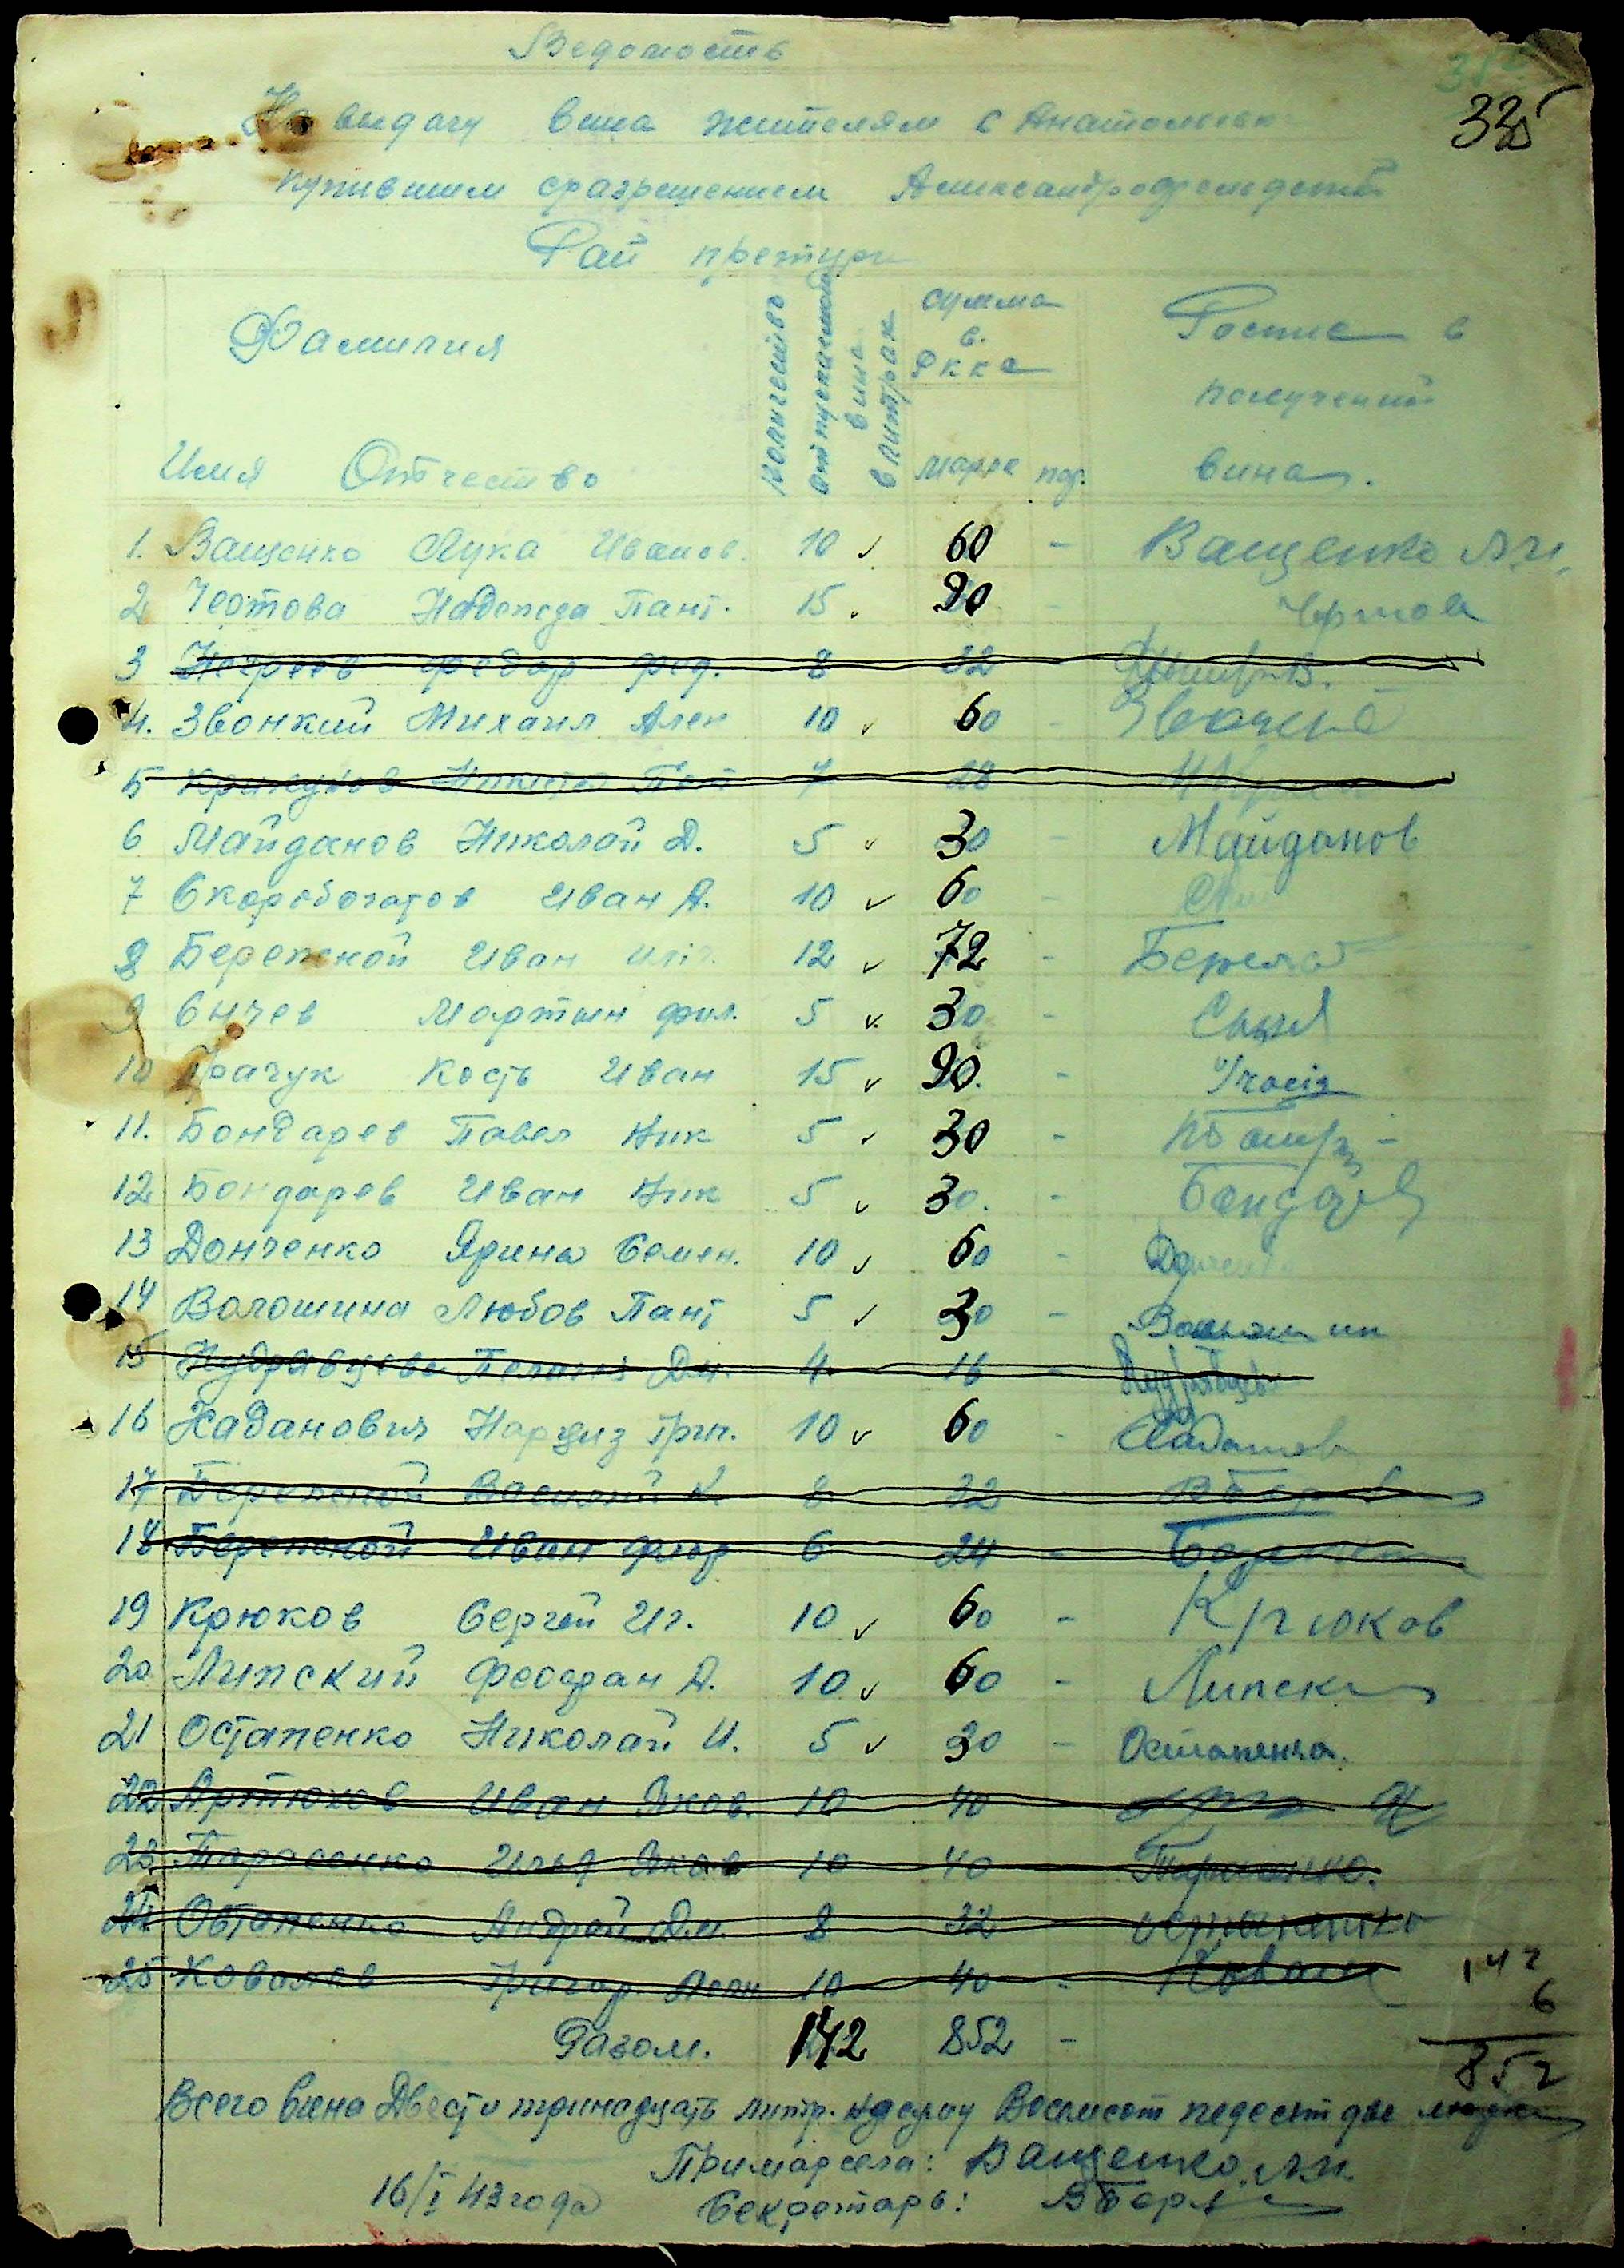 Ведомость
335
На выдачу вина жителям с Анатольевк
купившим сразрешением Александрофельдской
Рай претуры
Фамилия
Имя Отчество
количество
отпускаемой
вина
в литрах
сумма
в.
Рккс
марке
пф.
Роспис в
получений
вина.
1. Ващенко Лука Иванов. 10 ✓ 60 - Ващенко Л.И.
2 Чертова Надежда Пант. 15. 90 - Чертова
3 Федор Фед. 8 32
4. Звонкий Михаил Алек 10 ✓ 60 -
5 Никита 7 28
6 Майданов Николай Д. 5 ✓ 30 - Майданов
7 Скоробогатов Иван А. 10 ✓ 60 -
8 Бережной Иван 12 ✓ 72 -
9 Сычев Мартын фил. 5 ✓ 30 - Сычев
10 Грачук Кость Иван 15 ✓ 90. -
11. Бондарев Павел Ник 5 ✓ 30 -
12 Бондарев Иван Ник 5 ✓ 30. - Бондарев
13 Донченко Ярина Семен. 10 ✓ 60 -
14 Волошина Любов Пант 5 ✓ 30 - Волошин
15 Кудрявцева Пелагея Дм. 4 16 - Кудрявцева
16 Хаданович Нарциз Григ. 10 ✓ 60 -
17 Бережной Василий К 8 32
18 Бережной Иван Фиор 6 24 -
19 Крюков Сергей Иг. 10 ✓ 60 - Крюков
20 Липский Феофан Д. 10 ✓ 60 - Липски
21 Остапенко Николай И. 5 ✓ 30 - Остапенко.
22 Артюхов Иван Яков. 10 40
23 Тарасенко Илья Яков 10 40 - Тарасенко.
24 Остапенко Андрей Дм. 8 32 -
25 Ковалев Григор 10 40 -
142
6
852
Разом. 142 852 -
Всего вина Двести тринадцать литр. на суму Восемсот педесят две
Примарела: Ващенко Л.И.
16/I 43 года Секретарь: